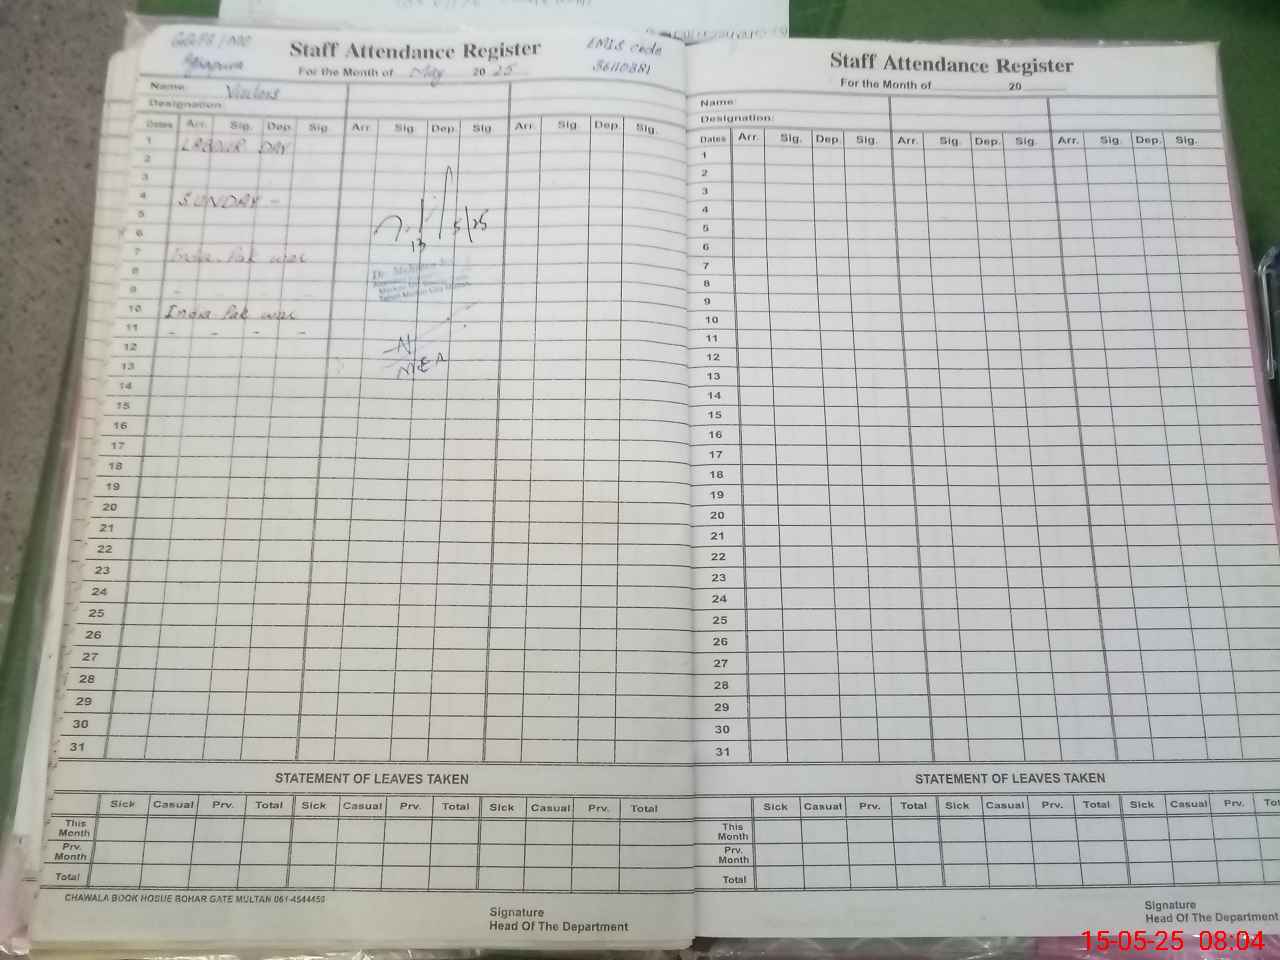 Staff Attendance Register
EMIS code
36110381
For the Month of May 20 25
Name: Visitors
Designation:
Dates Arr. Sig. Dep. Sig. Arr. Sig. Dep. Sig. Arr. Sig. Dep. Sig.
1 LABOUR DAY
2
3
4 SUNDAY -
5
6
7 India Pak war
8
9
10 India Pak war
11 - - - -
12
13
14
15
16
17
18
19
20
21
22
23
24
25
26
27
28
29
30
31
13/5/25
STATEMENT OF LEAVES TAKEN
Sick Casual Prv. Total Sick Casual Prv. Total Sick Casual Prv. Total
This Month
Prv. Month
Total
CHAWALA BOOK HOSUE BOHAR GATE MULTAN 061-4544459
Signature
Head Of The Department
Staff Attendance Register
For the Month of 20
Name:
Designation:
Dates Arr. Sig. Dep. Sig. Arr. Sig. Dep. Sig. Arr. Sig. Dep. Sig.
1
2
3
4
5
6
7
8
9
10
11
12
13
14
15
16
17
18
19
20
21
22
23
24
25
26
27
28
29
30
31
STATEMENT OF LEAVES TAKEN
Sick Casual Prv. Total Sick Casual Prv. Total Sick Casual Prv. Tot
This Month
Prv. Month
Total
Signature
Head Of The Department
15-05-25 08:04